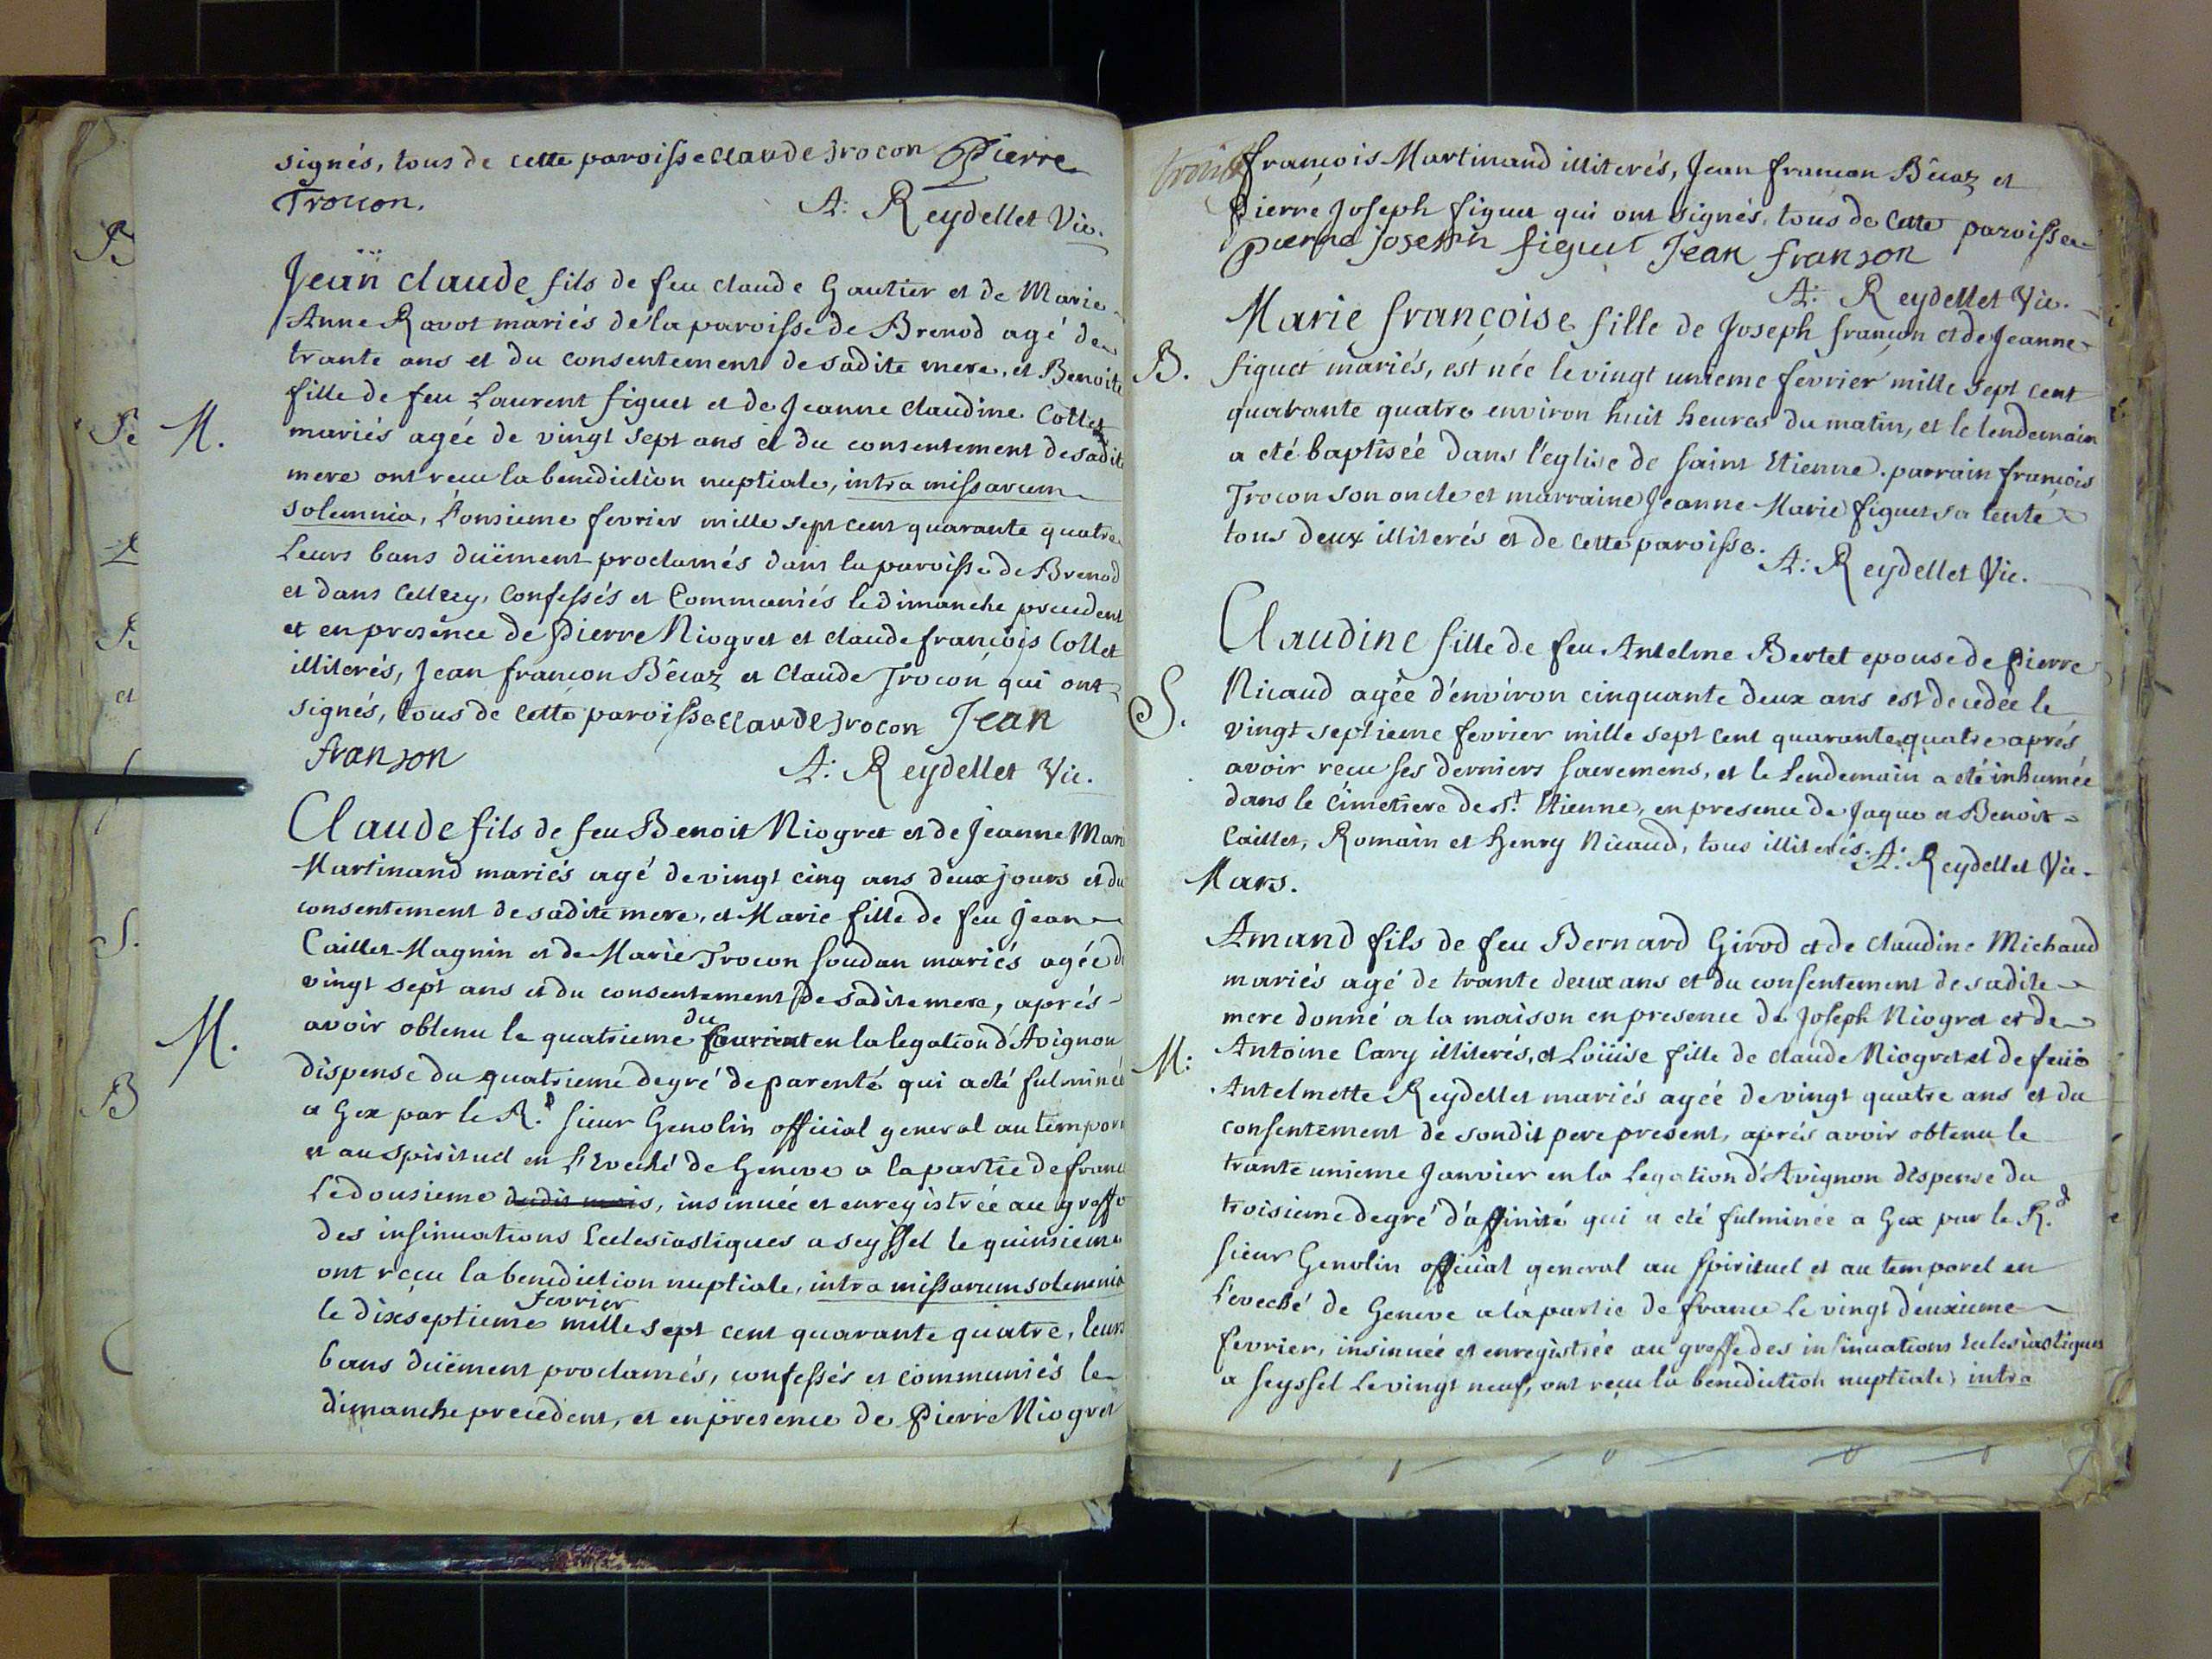 signés, tous de cette paroisse claude trocon Pierre
Trocon.
A: Reydellet Vic.
Jean claude fils de feu claude Gautier et de Marie
Anne Ravot mariés de la paroisse de Brenod agé de
trante ans et du consentement de sadite mere, et Benoite
fille de feu Laurent figuet et de Jeanne claudine Collet
M.
mariés agée de vingt sept ans et du consentement de sadite
mere ont recu la benediction nuptiale, intra missarum
solemnia, l'onsieme fevrier mille sept cent quarante quatre
Leurs bans duëment proclamés dans la paroisse de Brenod
et dans celle cy, confessés et Communiés le dimanche precedent
et en presence de pierre Niogret et claude françois Collet
illiterés, Jean françon Bêcaz et claude Trocon qui ont
signés, tous de cette paroisse claude trocon Jean
franson
A: Reydellet Vic.
Claude fils de feu Benoit Niogret et de Jeanne Mari
Martinand mariés agé de vingt cinq ans deux jours et du
consentement de sadite mere, et Marie fille de feu Jean
Caillet Magnin et de Marie Trocon soudan mariés agée d
vingt sept ans et du consentement de sadite mere, aprés
M.
avoir obtenu le quatrieme du courrant en la legation d'Avignon
dispense du quatrieme degré de parenté qui a eté fulminée
a Gex par le R.d sieur Genolin official general au tempor
et au spirituel en L'Eveché de Geneve a la partie de franc
Le dousieme dudit mois, insinuée et enregistrée au greffe
des insinuations Ecclesiastiques a seyssel le quinsieme
ont reçu la benediction nuptiale, intra missarum solemnia
le dixseptieme fevrier mille sept cent quarante quatre, leurs
bans duëment proclamés, confessés et communiés le
dimanche precedent, et en presence de pierre Niogret
françois Martinand illiterés, Jean françon Bêcaz et
pierre Joseph figuet qui ont signés, tous de cette paroisse
pierre joseph figuet Jean franson
A: Reydellet Vic.
Marie françoise fille de Joseph françon et de Jeanne
B.
figuet mariés, est née le vingt unieme fevrier mille sept cent
quarante quatre environ huit heures du matin, et le lendemain
a eté baptiséé dans l'eglise de saint Etienne. parrain françois
Trocon son oncle et marraine Jeanne Marie figuet sa tente
tous deux illiterés et de cette paroisse.
A: Reydellet Vic.
Claudine fille de feu Antelme Bertet epouse de pierre
S.
Nicaud agée d'environ cinquante deux ans est decedée le
vingt septieme fevrier mille sept cent quarante quatre aprés
avoir recu ses derniers sacremens, et le lendemain a eté inhumée
dans le cimetiere de st. Etienne, en presence de Jaque et Benoit
Caillet, Romain et Henry Nicaud, tous illiterés. A: Reydellet Vic.
Mars.
Amand fils de feu Bernard Girod et de claudine Michaud
mariés agé de trante deux ans et du consentement de sadite
mere donné a la maison en presence de Joseph Niogret et de
M:
Antoine Cary illiterés, et Loüise fille de claude Niogret et de feüe
Antelmette Reydellet mariés agéé de vingt quatre ans et du
consentement de sondit pere present, aprés avoir obtenu le
trante unieme Janvier en la Legation d'Avignon dispense du
troisieme degré d'affinité qui a eté fulminée a Gex par le R.d
sieur Genolin official general au spirituel et au temporel en
L'eveché de Geneve a la partie de france Le vingt deuxieme
fevrier, insinuée et enregistrée au greffe des insinuations Ecclesiastiques
a seyssel Le vingt neuf, ont reçu la benediction nuptiale, intra